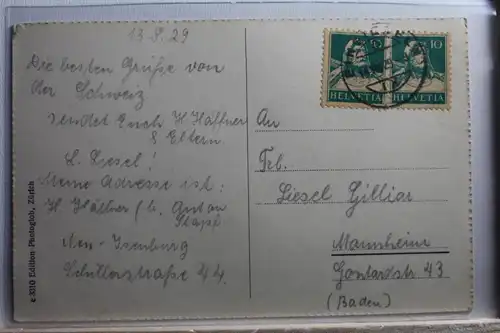 13.8.29
Die besten Grüße von
der Schweiz
sendet Euch H Häffner
& Eltern
L. Liesel!
Meine Adresse ist:
H. Häffner b. Anton
Stapf
Neu-Isenburg
Schillerstraße 44.
10 10
HELVETIA HELVETIA
An
Frl.
Liesel Gilliar
Mannheim
Gontardstr 43
(Baden)
z 3310 Edition Photoglob, Zürich